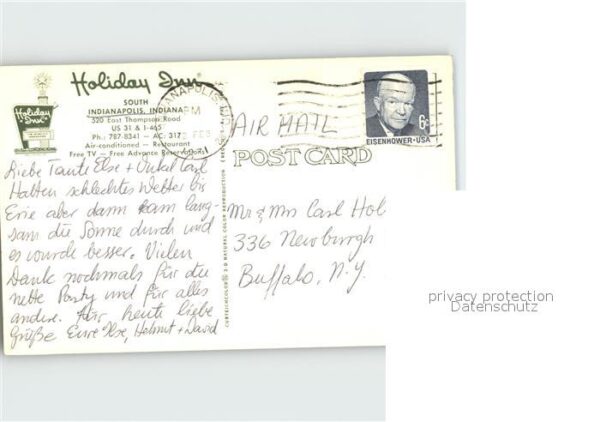 Holiday Inn
SOUTH
INDIANAPOLIS, INDIANA
520 East Thompson Road
US 31 & I-465
Ph.: 787-8341 — AC: 317
Air-conditioned — Restaurant
Free TV — Free Advance Reservations
Holiday Inn
PM
FEB
1971
AIR MAIL
6c
EISENHOWER·USA
POST CARD
Liebe Tante Else + Onkel Carl
Hatten schlechtes Wetter bis
Erie aber dann kam lang-
sam die Sonne durch und
es wurde besser. Vielen
Dank nochmals für die
nette Party und für alles
andere. Für heute liebe
Grüße Eure Ilse, Helmut + David
CURTEICHCOLOR® 3-D NATURAL COLOR REPRODUCTION
Mr & Mrs Carl Hol
336 Newburgh
Buffalo, N.Y.
privacy protection
Datenschutz